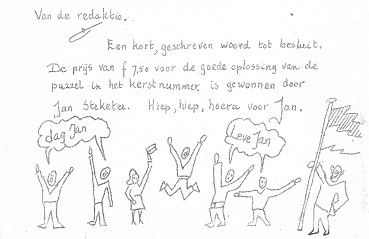 Van de redaktie.
Een kort, geschreven woord tot besluit.
De prijs van f 7,50 voor de goede oplossing van de
puzzel in het kerstnummer is gewonnen door
Jan Steketee. Hiep, hiep, hoera voor Jan.
dag Jan
Leve Jan